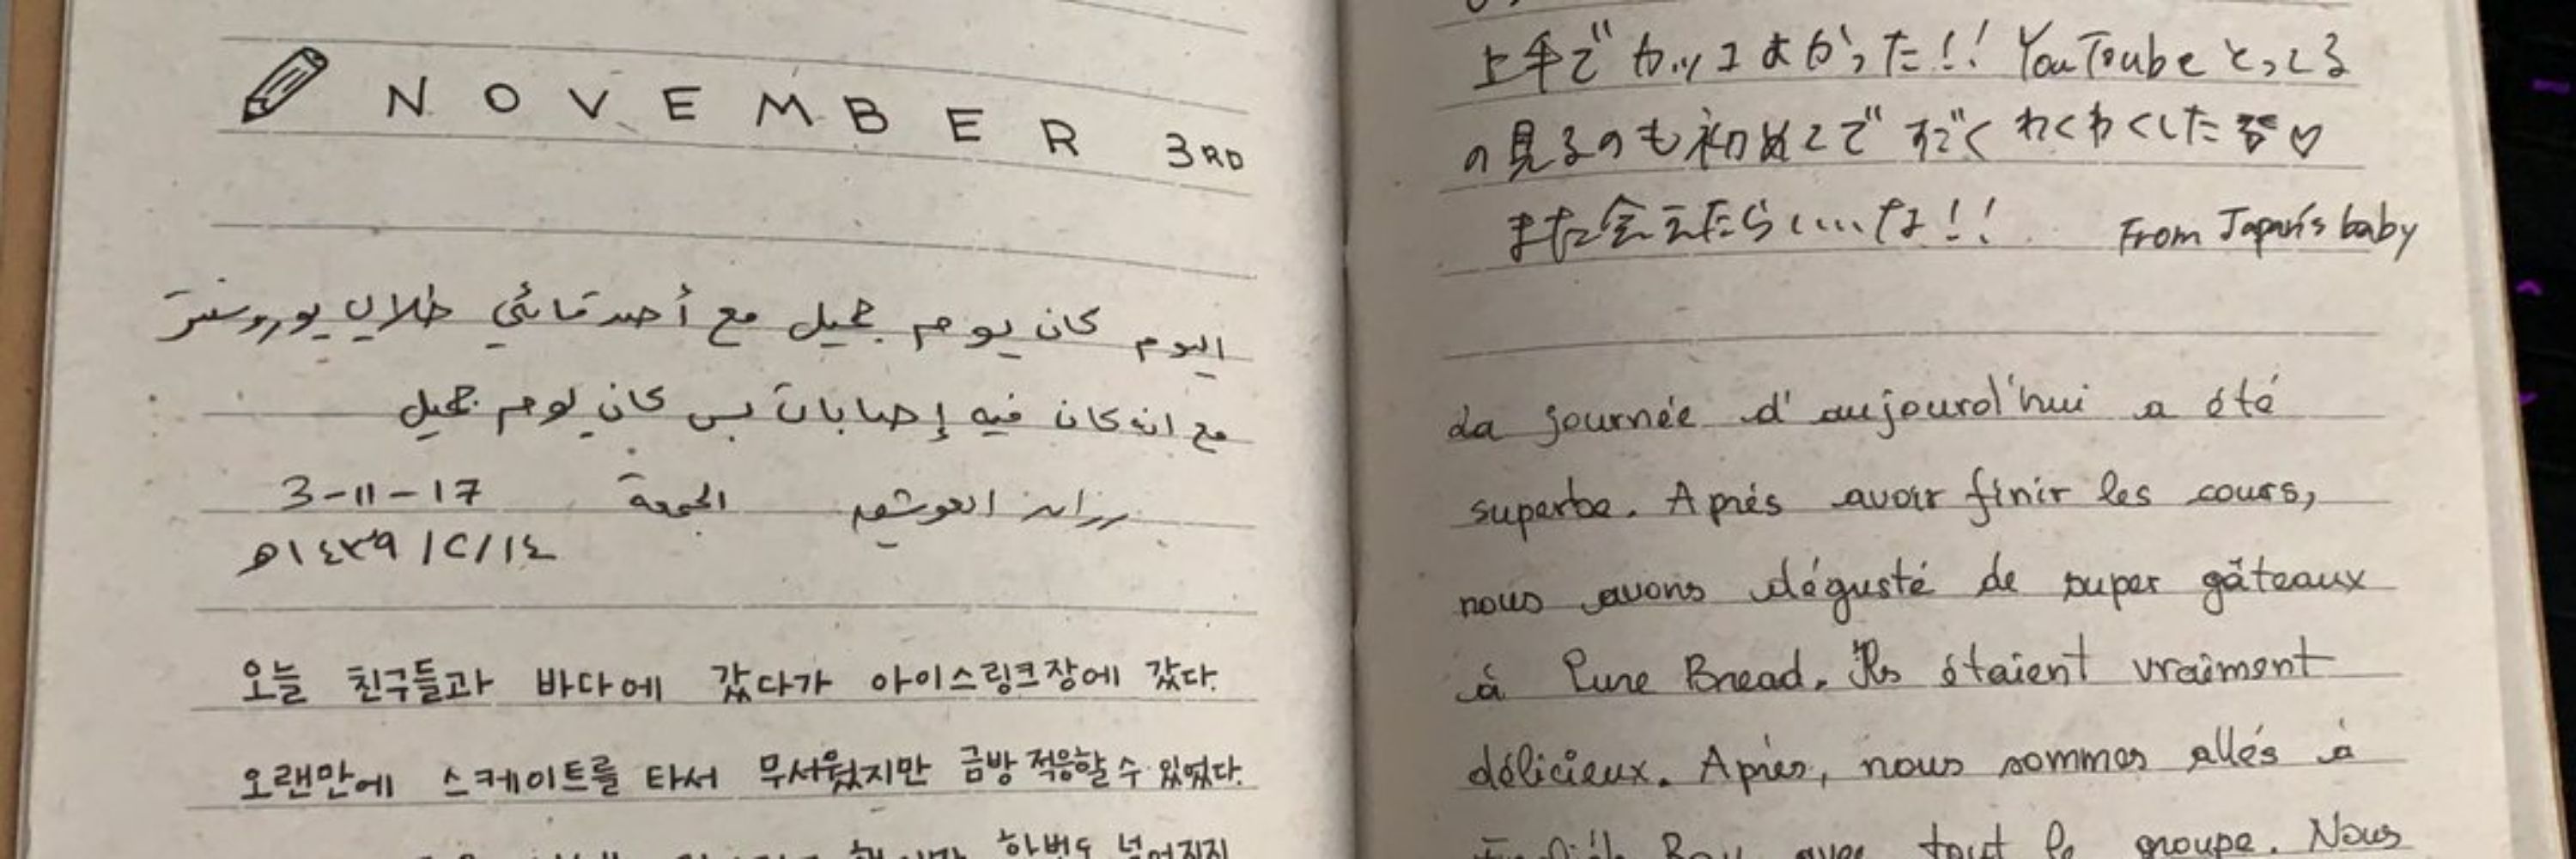 NOVEMBER 3RD
اليوم كان يوم جميل مع أصدقائي خلال يوروسنتر
مع انه كان فيه إصابات بس كان يوم جميل
رزان الجمعة 3-11-17
١٤/٢/١٤٣٩ه
오늘 친구들과 바다에 갔다가 아이스링크장에 갔다.
오랜만에 스케이트를 타서 무서웠지만 금방 적응할 수 있었다.
한번도 넘어지지
上手でカッコよかった!! YouToubeとってる
の見るのも初めてですごくわくわくした♡
また会えたらいいな!! From Japan's baby
La journée d'aujourd'hui a été
superbe. Après avoir finir les cours,
nous avons dégusté de super gâteaux
à Pure Bread. Ils étaient vraiment
délicieux. Après, nous sommes allés à
Bay avec tout le groupe. Nous